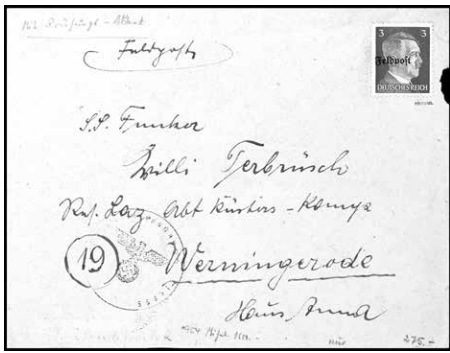 Feldpost
3 3
Feldpost
DEUTSCHES REICH
S.S. Funker
Willi Terbrüsch
Res. Laz. Abt
19
Werningerode
Haus Anna
275.-